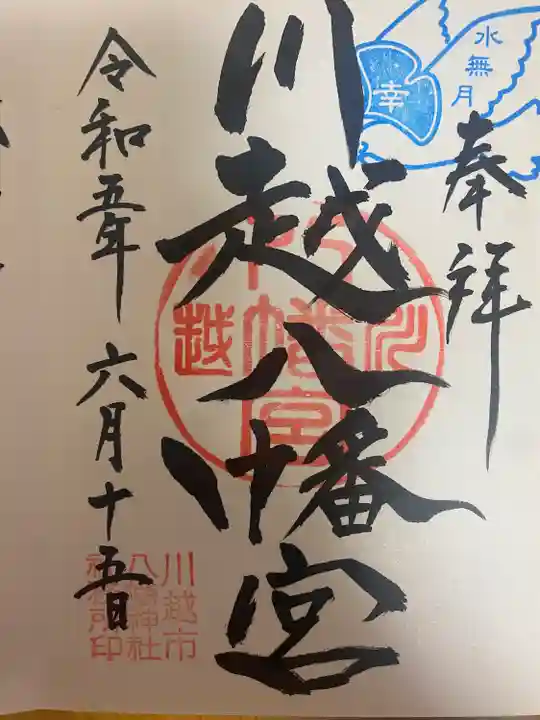 水無月
幸
奉拝
川越八幡宮
川越
八幡宮
令和五年六月十五日
川越市
八幡神社